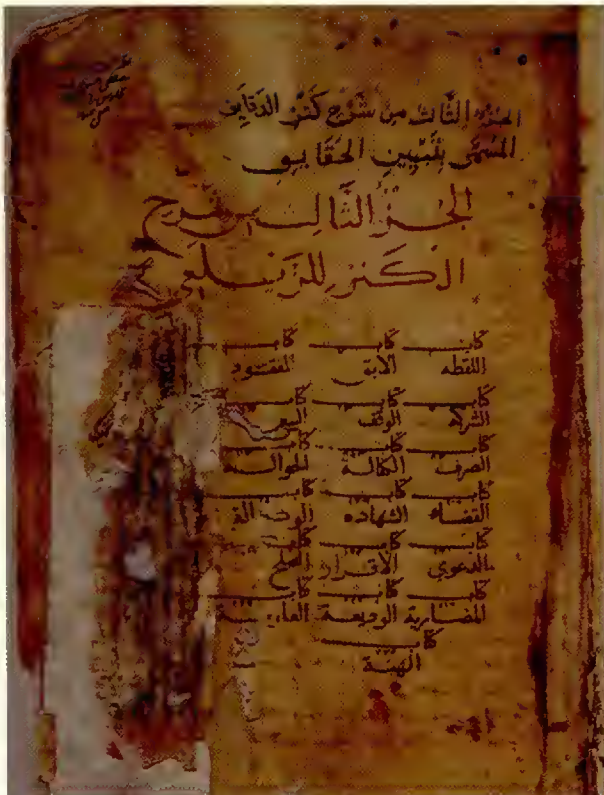 الجزء الثالث من شرح كنز الدقايق
المسمى بتبيين الحقايق
الجزء الثالث من شرح
الكنز للزيلعي
كتاب كتاب كتاب
اللقطه الابق المفقود
كتاب كتاب كتاب
الشركه الوقف البيع
كتاب كتاب كتاب
الصرف الكفالة الحوالة
كتاب كتاب كتاب
القضاء الشهاده الوكالة
كتاب كتاب كتاب
الدعوي الاقرار الصلح
كتاب كتاب كتاب
المضاربة الوديعة العارية
كتاب
الهبة